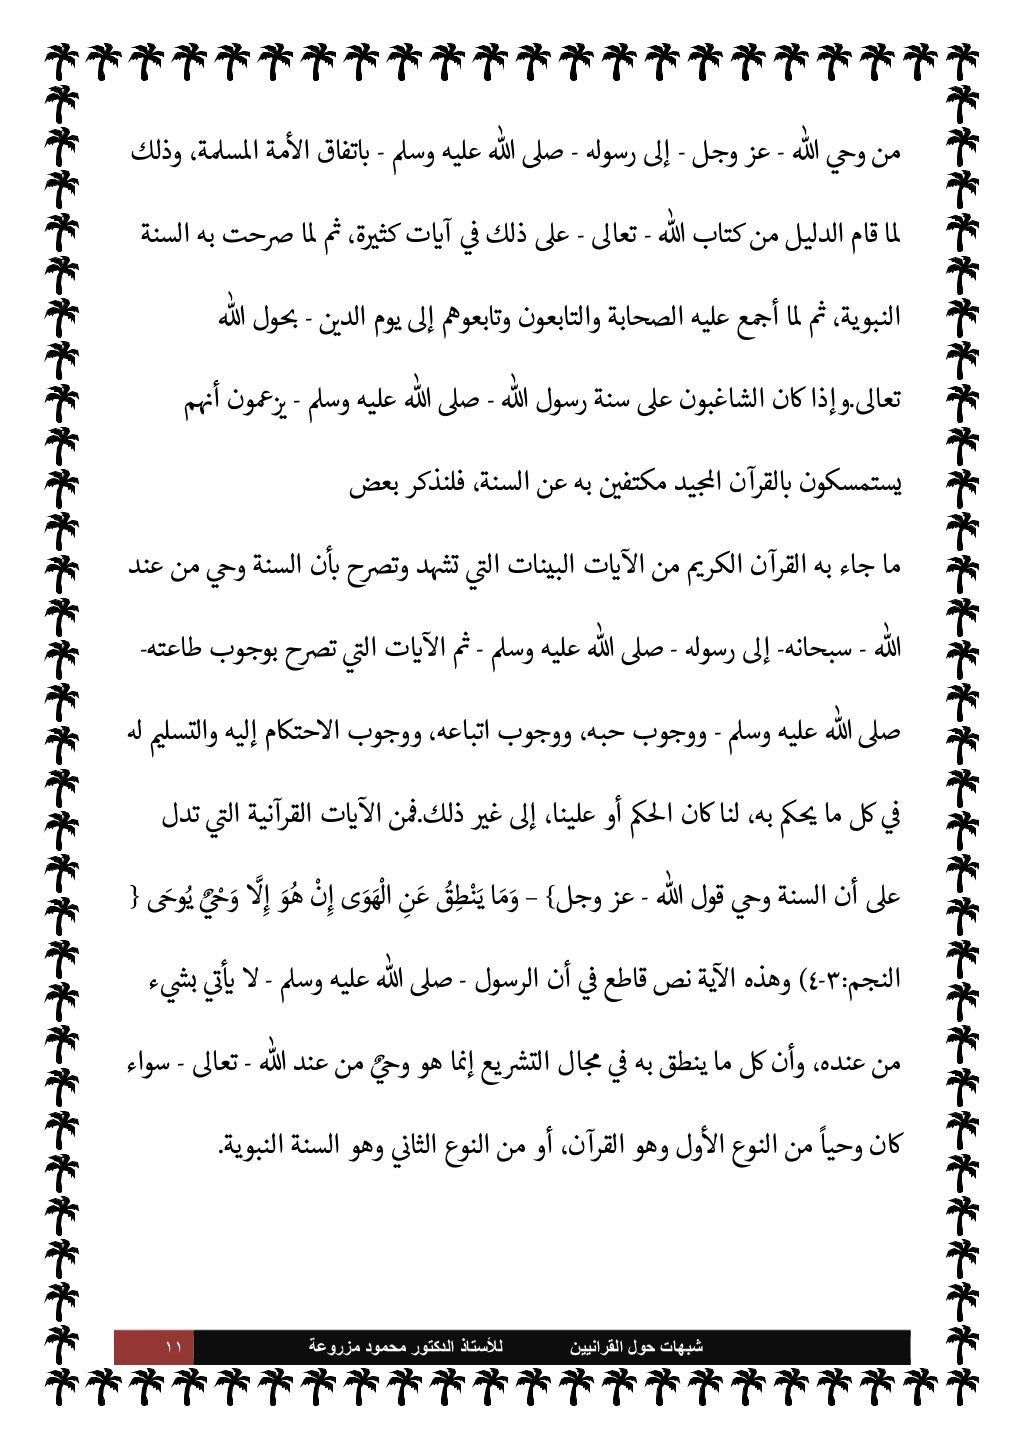 من وحي الله - عز وجل - إلى رسوله - صلى الله عليه وسلم - باتفاق الأمة المسلمة، وذلك
لما قام الدليل من كتاب الله - تعالى - على ذلك في آيات كثيرة، ثم لما صرحت به السنة
النبوية، ثم لما أجمع عليه الصحابة والتابعون وتابعوهم إلى يوم الدين - بحول الله
تعالى.وإذا كان الشاغبون على سنة رسول الله - صلى الله عليه وسلم - يزعمون أنهم
يستمسكون بالقرآن المجيد مكتفين به عن السنة، فلنذكر بعض
ما جاء به القرآن الكريم من الآيات البينات التي تشهد وتصرح بأن السنة وحي من عند
الله - سبحانه- إلى رسوله - صلى الله عليه وسلم - ثم الآيات التي تصرح بوجوب طاعته-
صلى الله عليه وسلم - ووجوب حبه، ووجوب اتباعه، ووجوب الاحتكام إليه والتسليم له
في كل ما يحكم به، لنا كان الحكم أو علينا، إلى غير ذلك.فمن الآيات القرآنية التي تدل
على أن السنة وحي قول الله - عز وجل} – وَمَا يَنْطِقُ عَنِ الْهَوَى إِنْ هُوَ إِلَّا وَحْيٌ يُوحَى {
النجم:٣-٤) وهذه الآية نص قاطع في أن الرسول - صلى الله عليه وسلم - لا يأتي بشيء
من عنده، وأن كل ما ينطق به في مجال التشريع إنما هو وحيٌ من عند الله - تعالى - سواء
كان وحياً من النوع الأول وهو القرآن، أو من النوع الثاني وهو السنة النبوية.
شبهات حول القرانيين للأستاذ الدكتور محمود مزروعة ١١